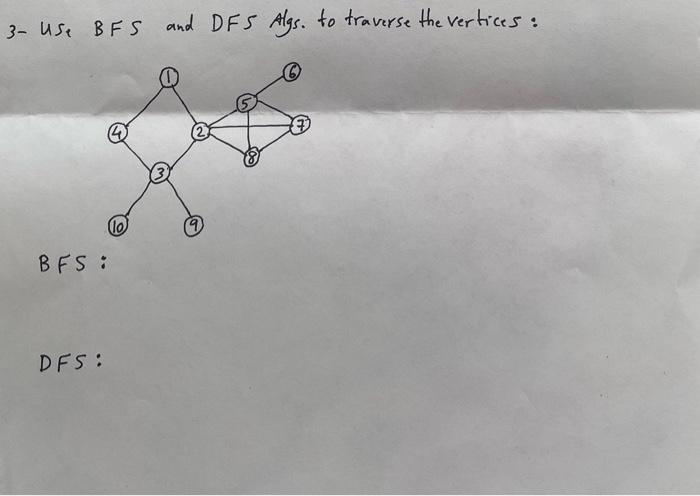 3- Use BFS and DFS Algs. to traverse the vertices :
1
6
5
4
2
7
8
3
10
9
BFS :
DFS :